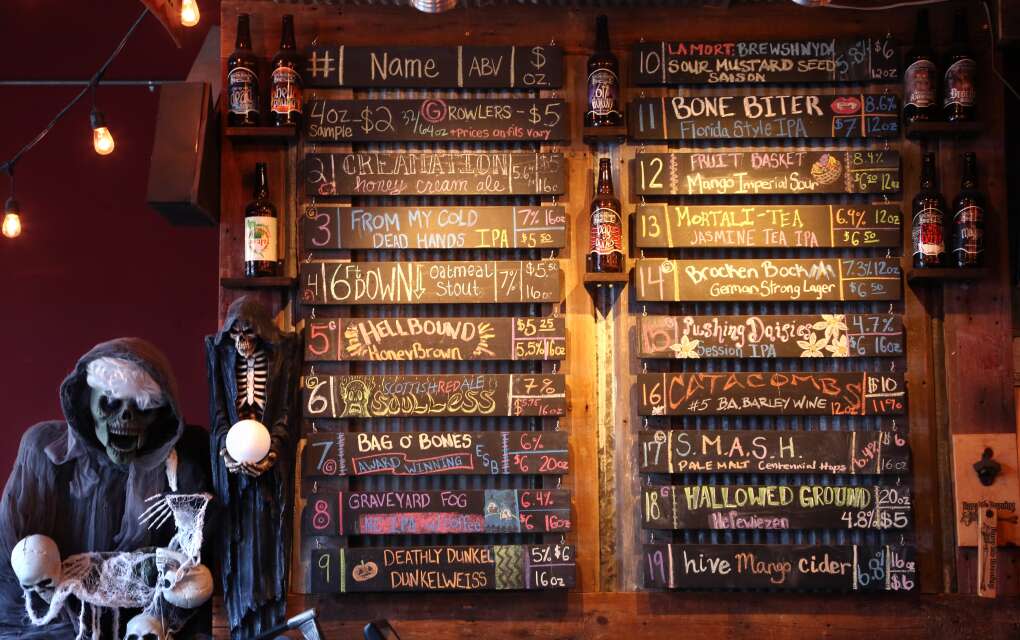 # Name ABV $ OZ.
4oz - $2 32/64oz GROWLERS - $5
Sample +Prices on fills vary
2 CREAMATION 5.6% $5
honey cream ale 16oz
3 FROM MY COLD 7% 16oz
DEAD HANDS IPA $6.50
4 6FT DOWN Oatmeal Stout 7% $5.50
16oz
5 HELLBOUND $5.25
HONEY BROWN 5.5% 16oz
6 SCOTTISH RED ALE 7%
SOULLESS 16oz
7 BAG O' BONES ESB 6%
AWARD WINNING $6 20oz
8 GRAVEYARD FOG 6.4%
Coffee $6 16oz
9 DEATHLY DUNKEL 5% $6
DUNKELWEISS 16oz
10 LA MORT: BREWSHNYDA $6
SOUR MUSTARD SEED
SAISON 12oz
11 BONE BITER 8.6%
Florida Style IPA $7 12oz
12 FRUIT BASKET 8.4%
Mango Imperial Sour $6.50 12oz
13 MORTALI-TEA 6.9% 12oz
JASMINE TEA IPA $6.50
14 Brocken Bock 7.3% 12oz
German Strong Lager $6.50
15 Pushing Daisies 4.7%
Session IPA $6 16oz
16 CATACOMBS $10
#5 B.A. BARLEY WINE 12oz 11%
17 S.M.A.S.H. 6.4% $6
PALE MALT Centennial Hops 16oz
18 HALLOWED GROUND 20oz
Hefeweizen 4.8% $5
19 hive Mango cider 6.8% 16oz
$6